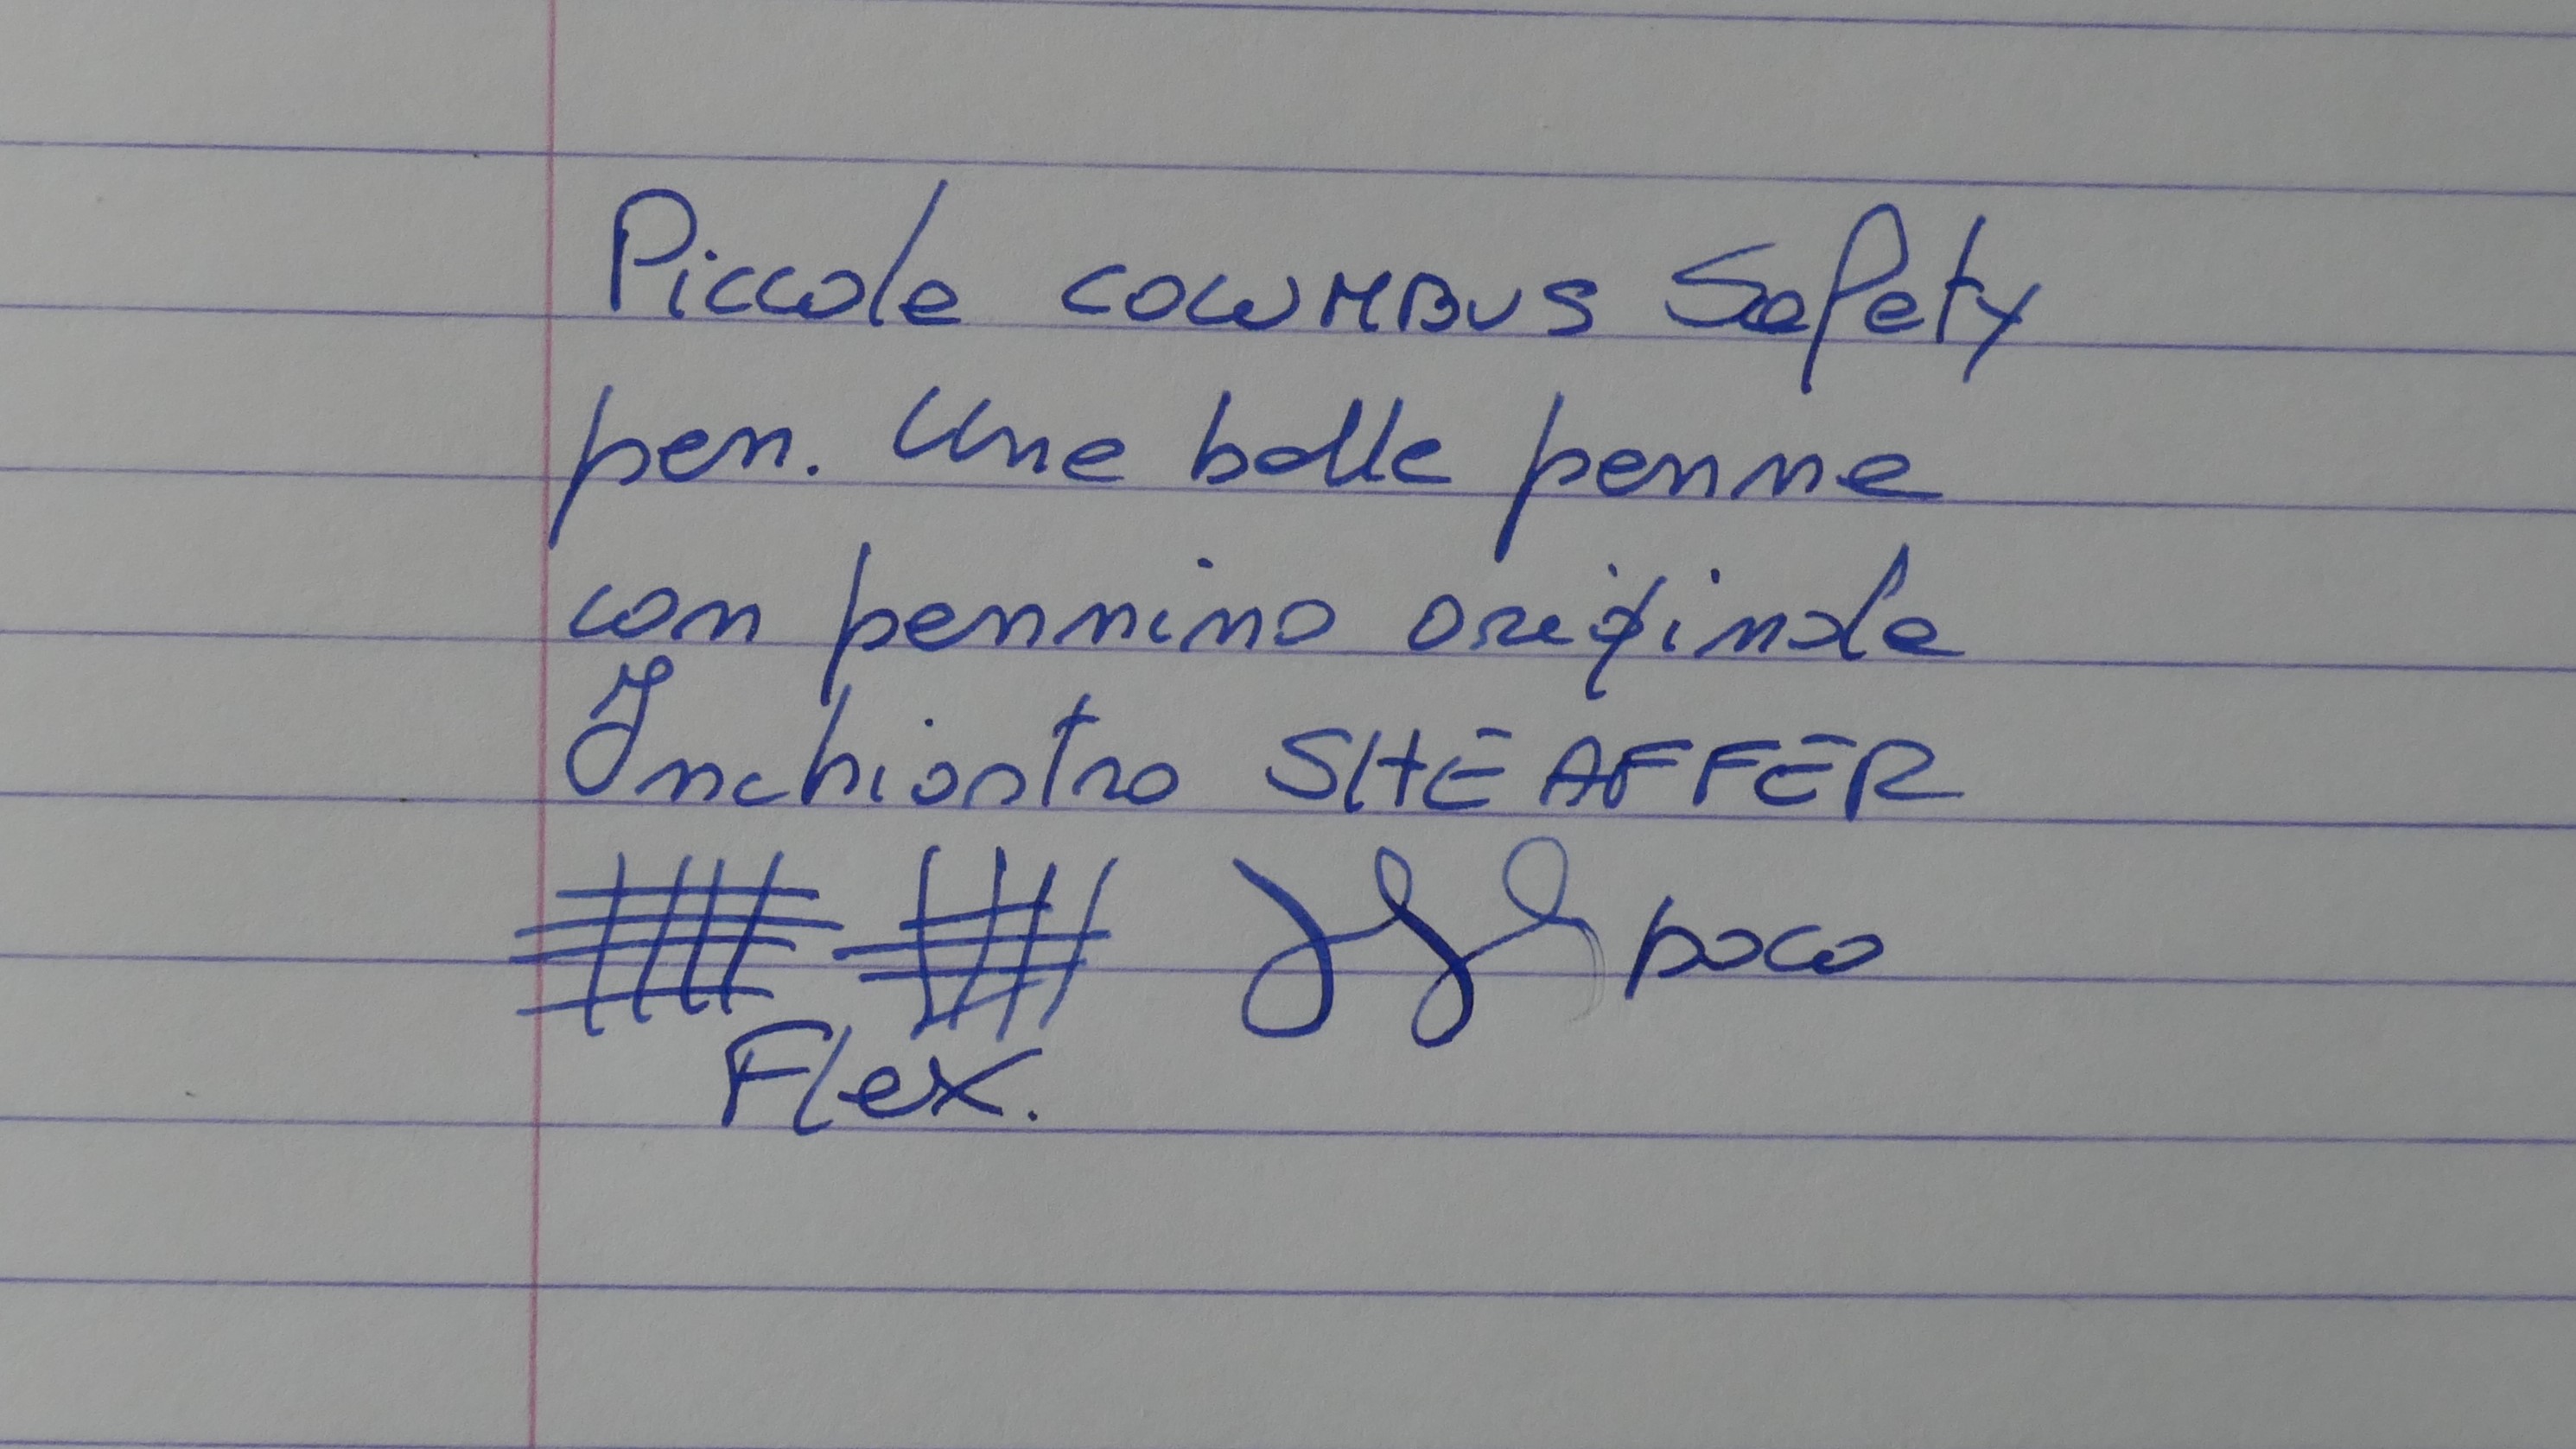 Piccola COLUMBUS Safety
pen. Una bella penna
con pennino originale
Inchiostro SHEAFFER
poco
Flex.